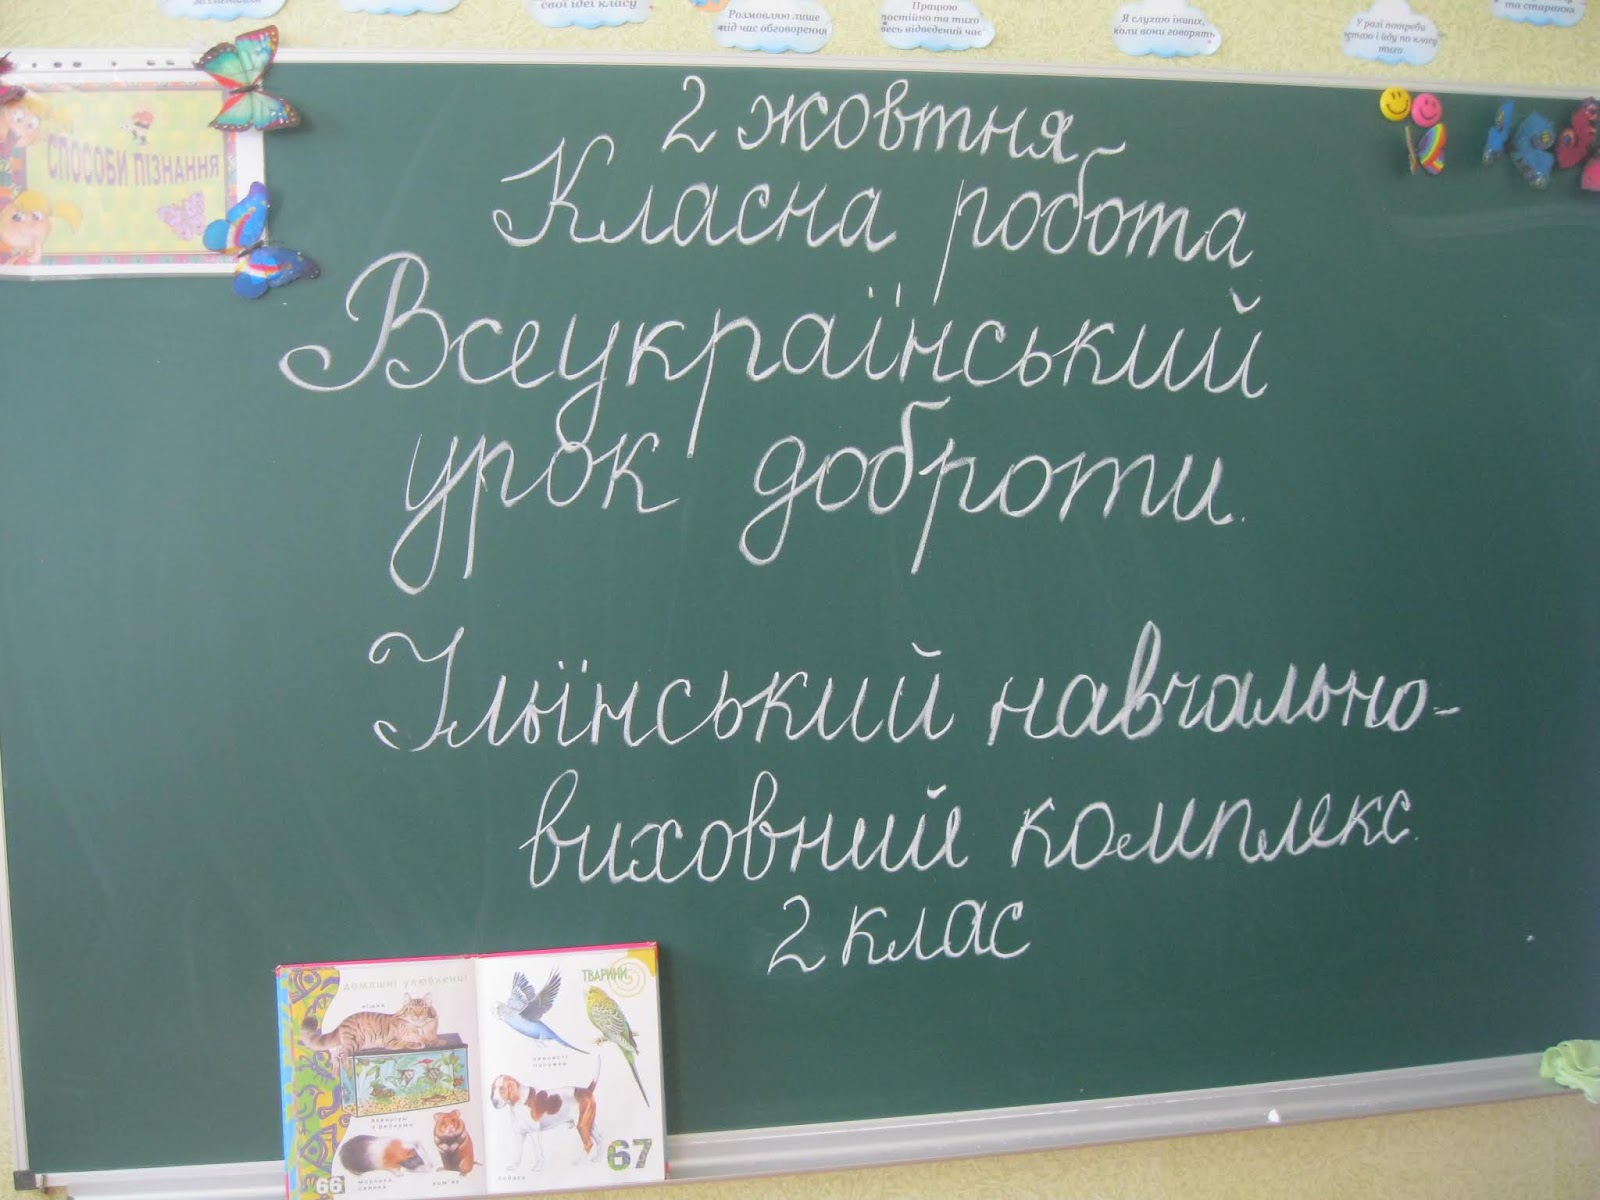 свої ідеї класу
Розмовляю лише
під час обговорення
Працюю
постійно та тихо
весь відведений час
Я слухаю інших,
коли вони говорять
У разі потреби
встаю і йду по класу
тихо
та старання
СПОСОБИ ПІЗНАННЯ
2 жовтня
Класна робота
Всеукраїнський
урок доброти.
Ільїнський навчально-
виховний комплекс.
2 клас
домашні улюбленці
кішка
акваріум
з рибками
морська
свинка
хом'як
66
ТВАРИНИ
хвилясті
папужки
собака
67